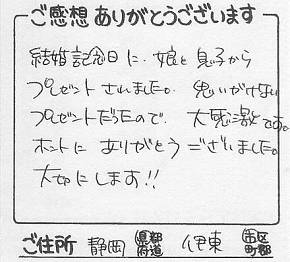 ご感想ありがとうございます
結婚記念日に、娘と息子から
プレゼントされました。思いがけない
プレゼントだったので、大感激です。
ホントにありがとうございました。
大切にします!!
ご住所 静岡 都道府県 伊東 市区町郡